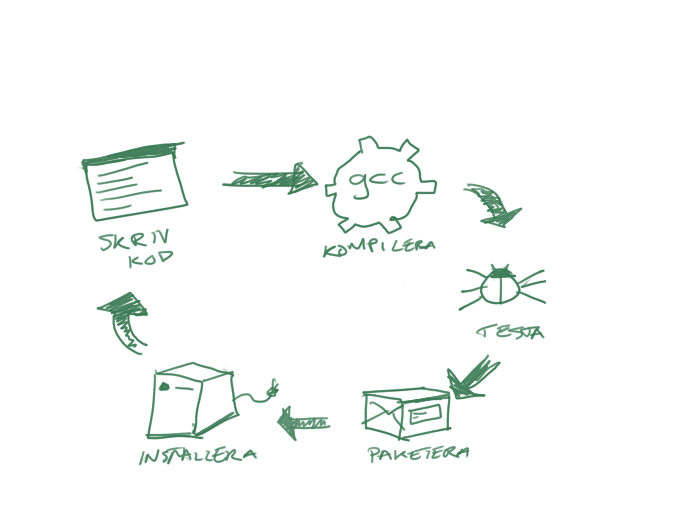 SKRIV
KOD
gcc
KOMPILERA
TESTA
PAKETERA
INSTALLERA